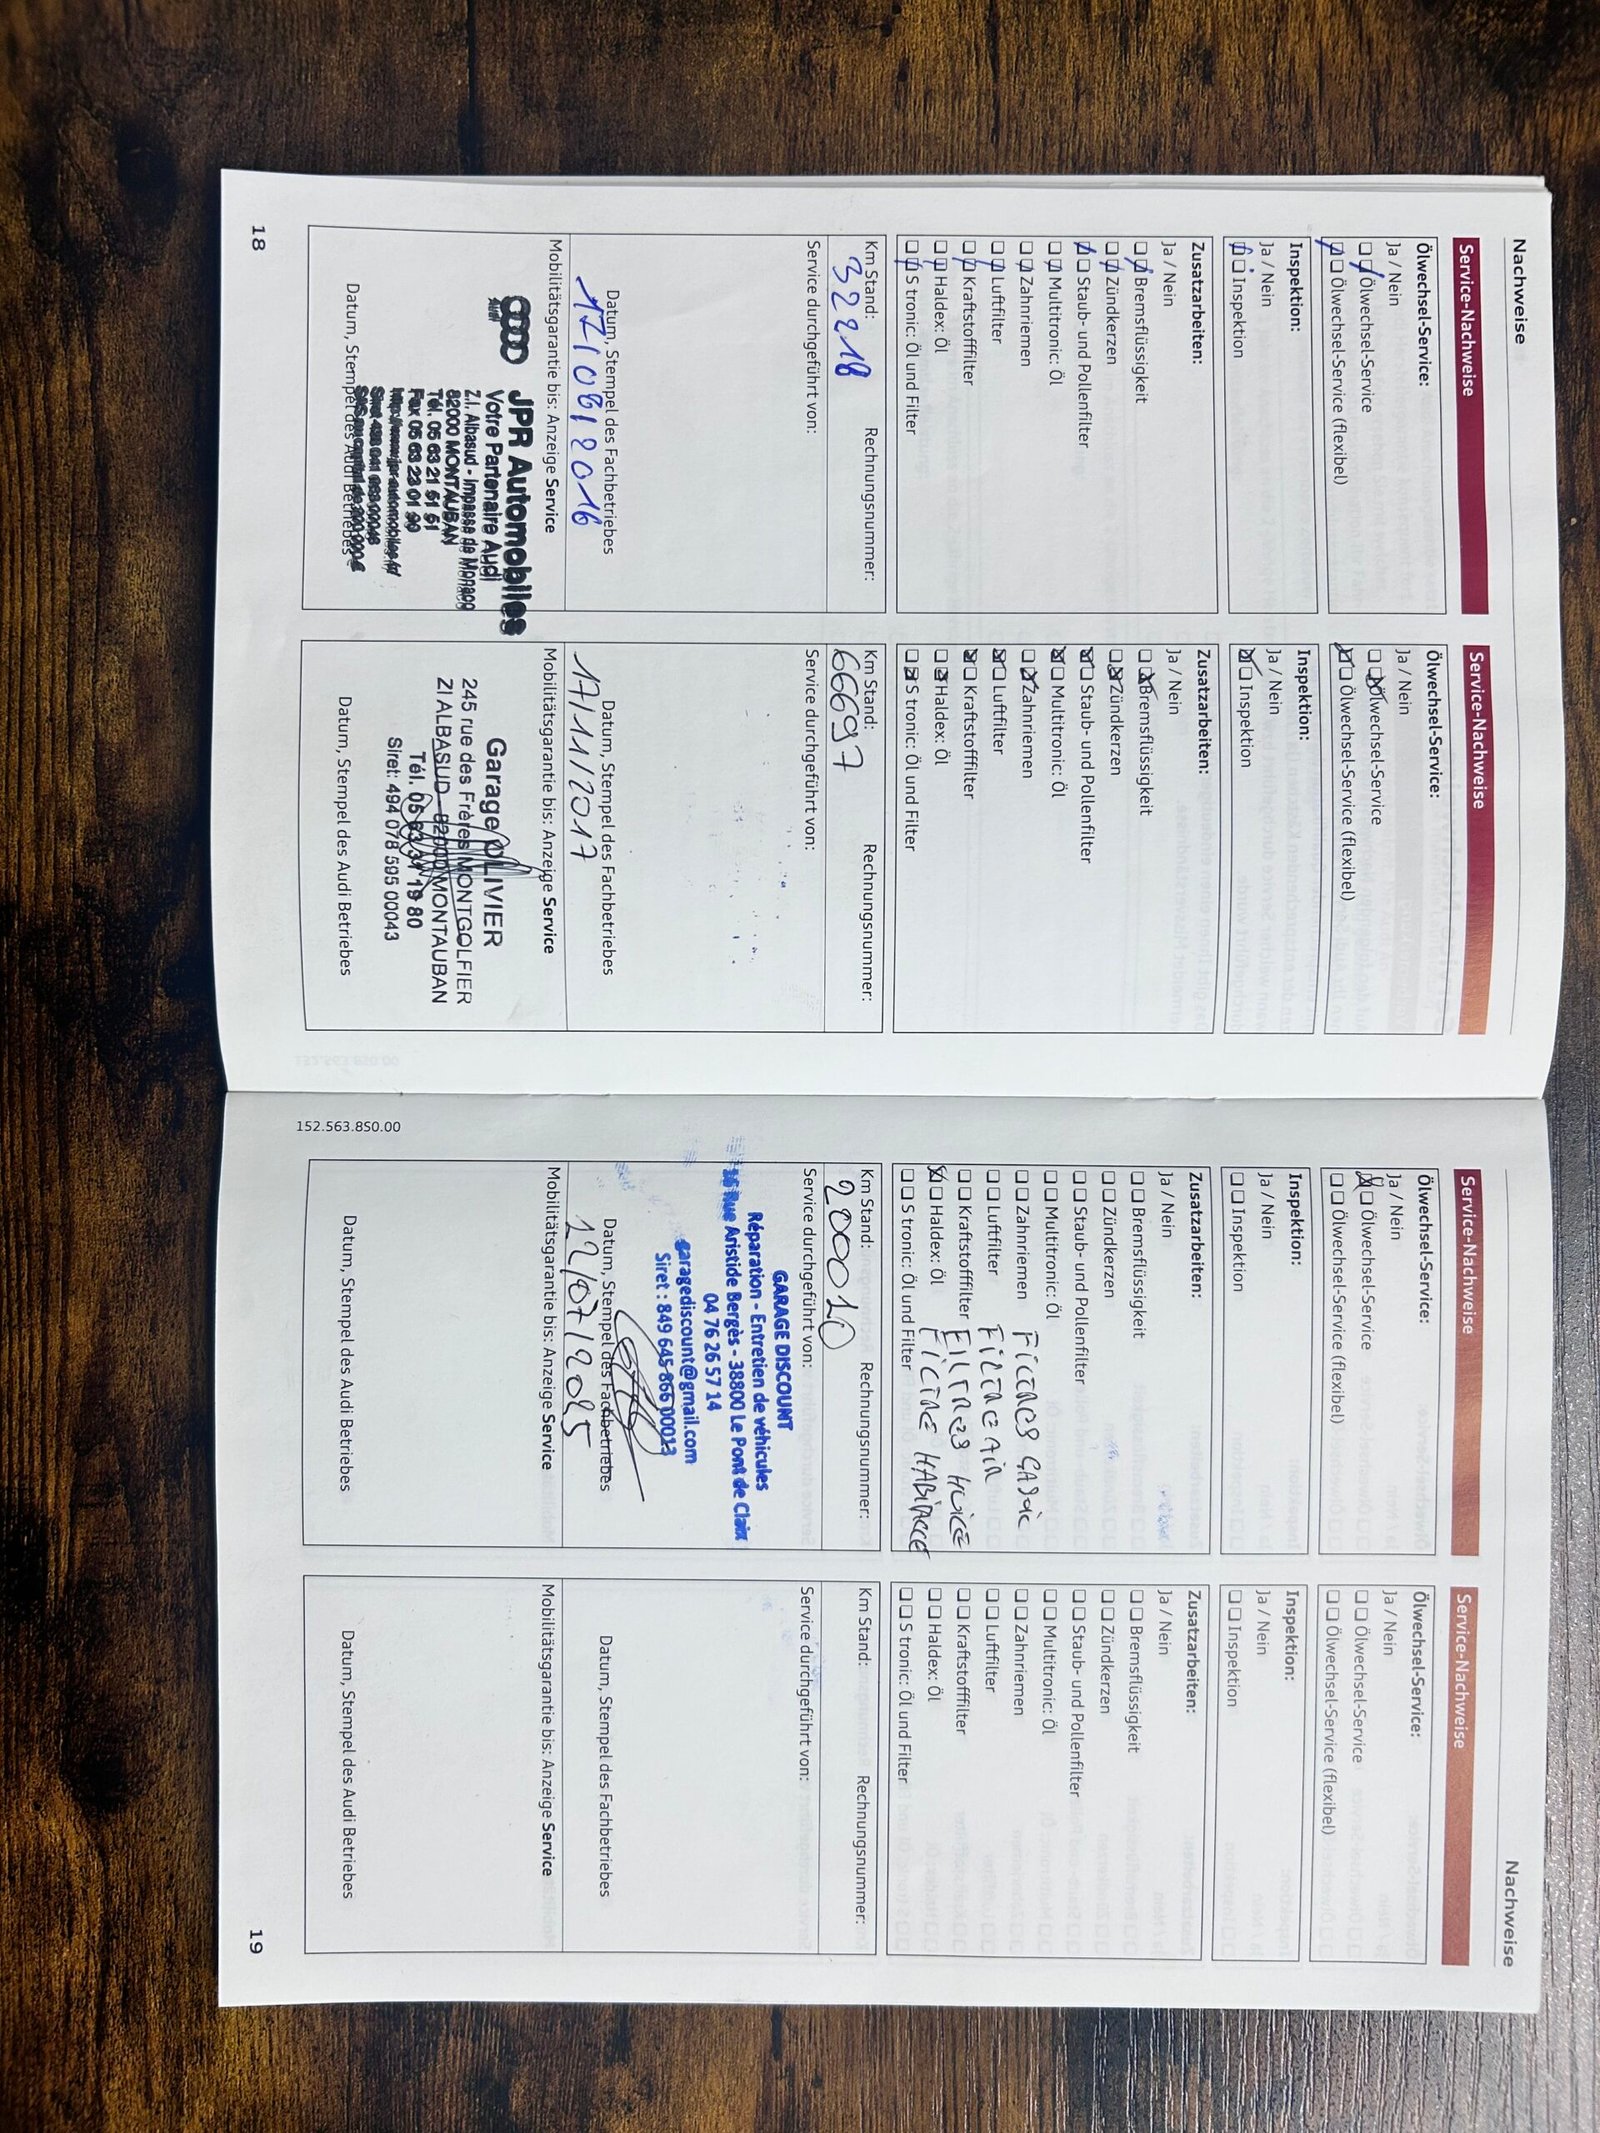 Nachweise
Service-Nachweise
Ölwechsel-Service:
Ja / Nein
Ölwechsel-Service
Ölwechsel-Service (flexibel)
Inspektion:
Ja / Nein
Inspektion
Zusatzarbeiten:
Ja / Nein
Bremsflüssigkeit
Zündkerzen
Staub- und Pollenfilter
Multitronic: Öl
Zahnriemen
Luftfilter
Kraftstofffilter
Haldex: Öl
S tronic: Öl und Filter
Km Stand: Rechnungsnummer:
32218
Service durchgeführt von:
Datum, Stempel des Fachbetriebes
17/08/2016
Mobilitätsgarantie bis: Anzeige Service
JPR Automobiles
Votre Partenaire Audi
Z.I. Albasud - Impasse de Monaco
82000 MONTAUBAN
Tél. 05 63 21 51 61
Fax 05 63 23 01 90
Datum, Stempel des Audi Betriebes
18
Service-Nachweise
Ölwechsel-Service:
Ja / Nein
Ölwechsel-Service
Ölwechsel-Service (flexibel)
Inspektion:
Ja / Nein
Inspektion
Zusatzarbeiten:
Ja / Nein
Bremsflüssigkeit
Zündkerzen
Staub- und Pollenfilter
Multitronic: Öl
Zahnriemen
Luftfilter
Kraftstofffilter
Haldex: Öl
S tronic: Öl und Filter
Km Stand: Rechnungsnummer:
66697
Service durchgeführt von:
Datum, Stempel des Fachbetriebes
17/11/2017
Mobilitätsgarantie bis: Anzeige Service
Garage OLIVIER
245 rue des Frères MONTGOLFIER
ZI ALBASUD - 82000 MONTAUBAN
Tél. 05 63 31 19 80
Siret: 494 078 595 00043
Datum, Stempel des Audi Betriebes
Nachweise
Service-Nachweise
Ölwechsel-Service:
Ja / Nein
Ölwechsel-Service
Ölwechsel-Service (flexibel)
Inspektion:
Ja / Nein
Inspektion
Zusatzarbeiten:
Ja / Nein
Bremsflüssigkeit
Zündkerzen
Staub- und Pollenfilter
Multitronic: Öl
Zahnriemen
Luftfilter FILTRE AIR
Kraftstofffilter FILTRES HUILE
Haldex: Öl FILTRE HABITACLE
S tronic: Öl und Filter
Km Stand: Rechnungsnummer:
200010
Service durchgeführt von:
GARAGE DISCOUNT
Réparation - Entretien de véhicules
16 Rue Aristide Bergès - 38800 Le Pont de Claix
04 76 26 57 14
garagediscount@gmail.com
Siret : 849 645 866 00013
Datum, Stempel des Fachbetriebes
12/07/2025
Mobilitätsgarantie bis: Anzeige Service
Datum, Stempel des Audi Betriebes
152.563.8S0.00
Service-Nachweise
Ölwechsel-Service:
Ja / Nein
Ölwechsel-Service
Ölwechsel-Service (flexibel)
Inspektion:
Ja / Nein
Inspektion
Zusatzarbeiten:
Ja / Nein
Bremsflüssigkeit
Zündkerzen
Staub- und Pollenfilter
Multitronic: Öl
Zahnriemen
Luftfilter
Kraftstofffilter
Haldex: Öl
S tronic: Öl und Filter
Km Stand: Rechnungsnummer:
Service durchgeführt von:
Datum, Stempel des Fachbetriebes
Mobilitätsgarantie bis: Anzeige Service
Datum, Stempel des Audi Betriebes
19